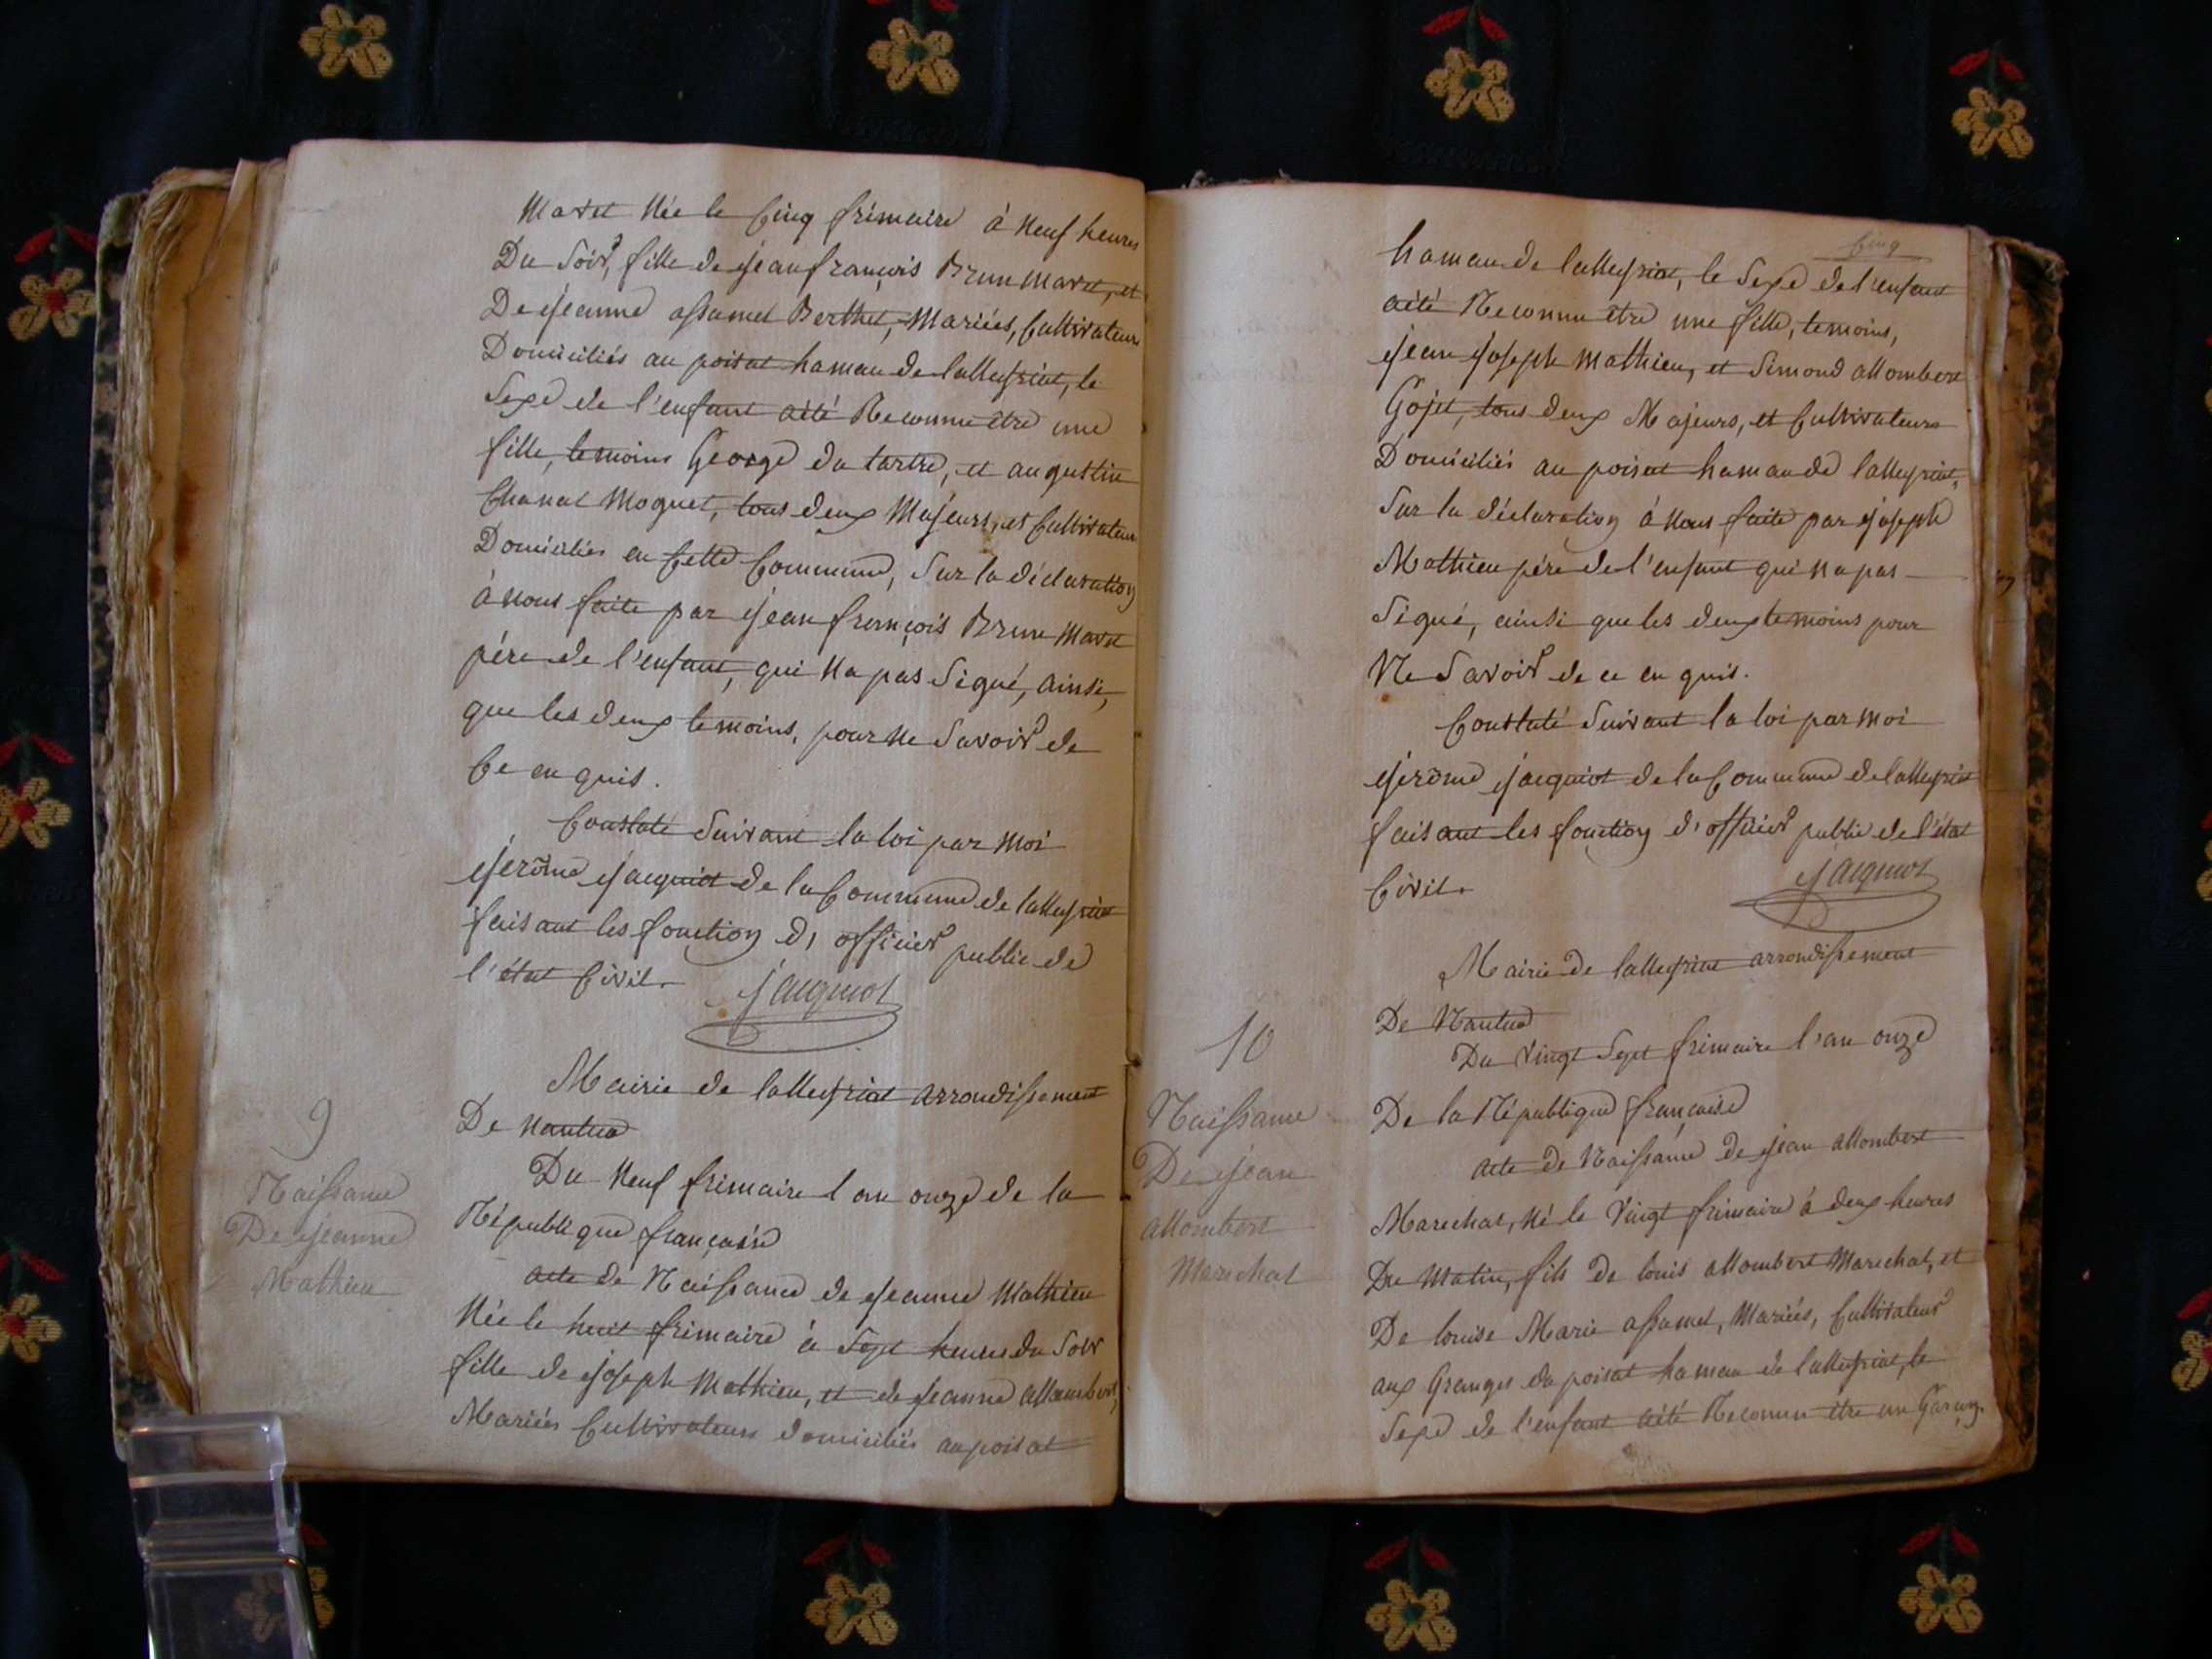 Maret Née le Cinq frimaire à Neuf heures
Du Soir, fille de jean françois Brun Maret, et
De jeanne assumel Berthet, Mariées, Cultivateurs
Domiciliés au poisat hamau de lalleyriat, le
Sexe de l'enfant aété Reconnu être une
fille, temoins George du tartre, et augustin
Chanal Moguet, tous deux Majeurs, et Cultivateurs
Domiciliés en Cette Commune, Sur la déclaration
à Nous faite par jean françois Brun Maret
pére de l'enfant, qui Na pas Signé, ainsi,
que les deux temoins, pour Ne Savoir de
Ce en quis.
Constaté Suivant la loi par Moi
jerôme jacquiot de la Commune de lalleyriat
faisant les fonction d'officier public de
l'état Civil.
jacquiot
Mairie de lalleyriat arrondissement
De Nantua
9
Naissance
De jeanne
Mathieu
Du Neuf frimaire l an onze de la
République française
acte de Naissance de jeanne Mathieu
Née le huit frimaire à Sept heures du Soir
fille de joseph Mathieu, et de jeanne allombert,
Mariées Cultivateurs domiciliés au poisat
Cinq
hamau de lalleyriat, le Sexe de l'enfant
aété Reconnu être une fille, temoins,
jean joseph Mathieu, et Simond allombert
Gojet, tous deux Majeurs, et Cultivateurs
Domiciliés au poisat hamau de lalleyriat,
Sur la déclaration à Nous faite par joseph
Mathieu pére de l'enfant qui Na pas
Signé, ainsi que les deux temoins pour
Ne Savoir de ce en quis.
Constaté Suivant la loi par Moi
jerôme jacquiot de la Commune de lalleyriat
faisant les fonction d'officier public de l'état
Civil.
jacquiot
Mairie de lalleyriat arrondissement
De Nantua
10
Naissance
De jean
allombert
Marechal
Du Vingt Sept frimaire l'an onze
De la République française
acte de Naissance de jean allombert
Marechal, Né le Vingt frimaire à deux heures
Du Matin, fils de louis allombert Marechal, et
De louise Marie assumel, Mariées, Cultivateur
aux Granges du poisat hamau de lalleyriat, le
Sexe de l'enfant aété Reconnu être un Garçon.